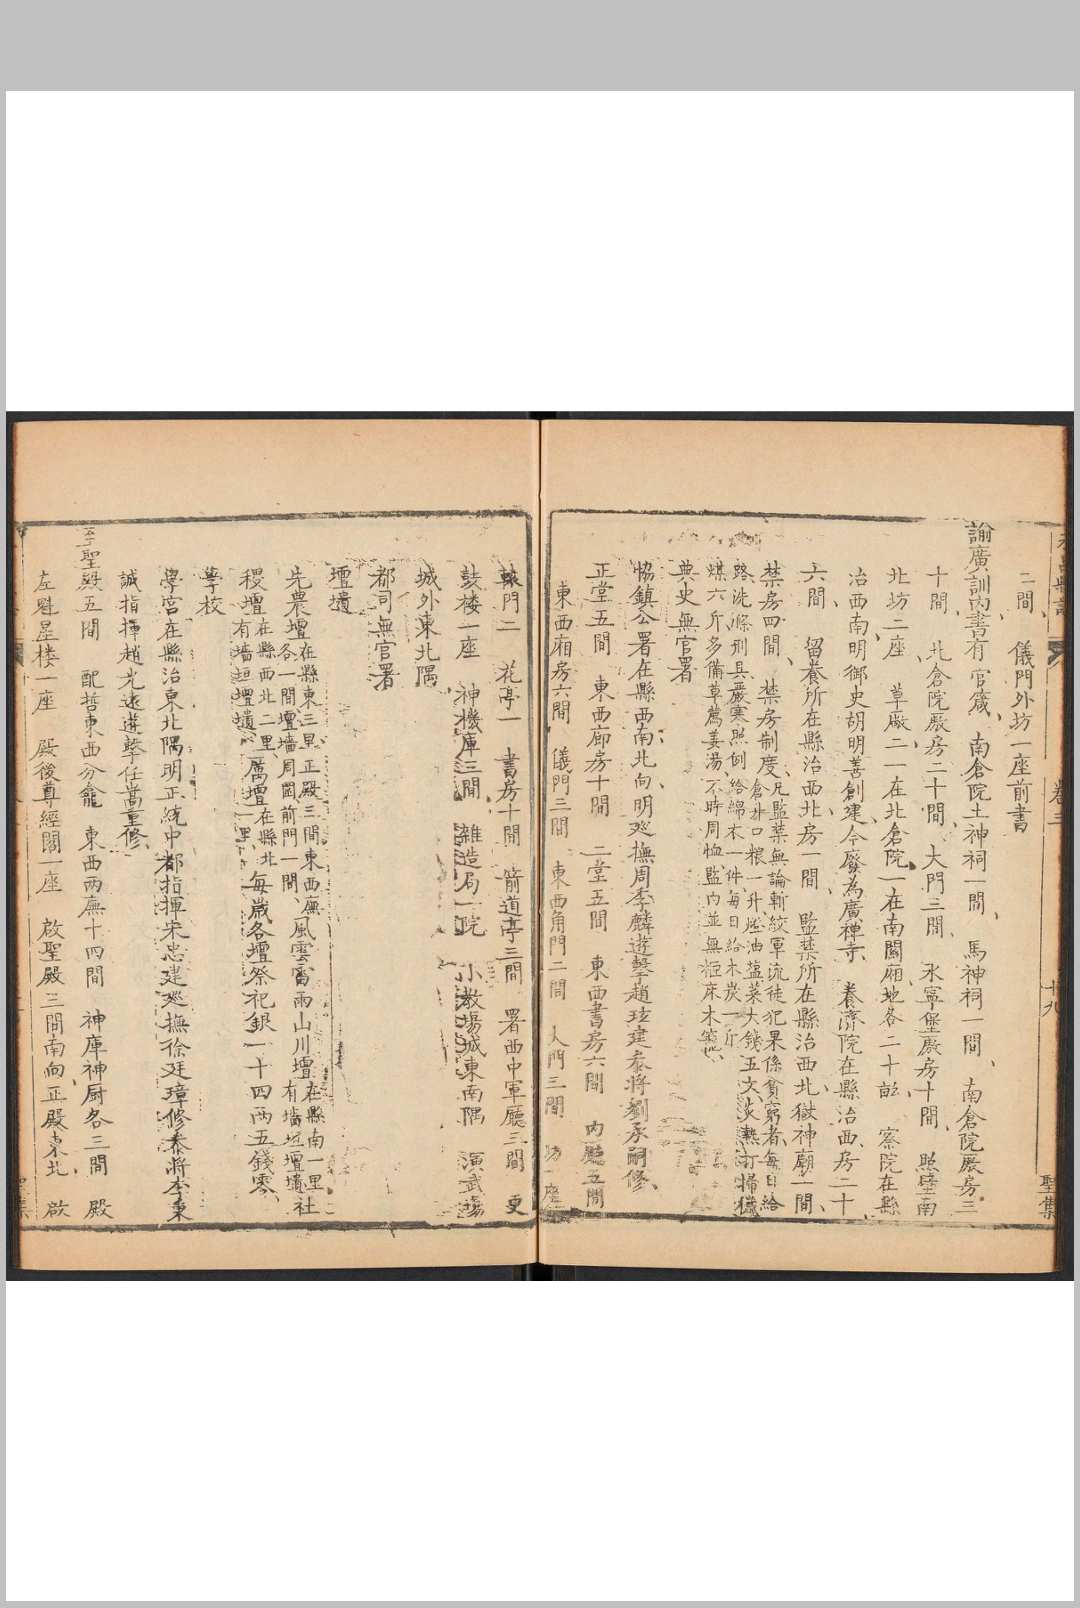 二間 儀門外坊一座前書
諭廣訓內書有 官箴 南倉院土神祠一間 馬神祠一間 南倉院廒房三
十間 北倉院廒房二十間 大門三間 永寧堡廒房十間 照壁南
北坊二座 草廠二一在北倉院一在南關廂地各二十畝 察院在縣
治西南明御史胡明善創建今廢為廣禪寺 養濟院在縣治西房二十
六間 留養所在縣治西北房一間 監禁所在縣治西北獄神廟一間
禁房四間 禁房制度凡監禁無論斬絞軍流徒犯果係貧窮者每日給
倉升口糧一升燈油鹽菜大錢五文炎熱打掃穢
路洗滌刑具嚴寒照例給綿衣一件每日給木炭一斤
煤六斤多備草薦姜湯不時周恤監內並無柜床木籠
典史無官署
協鎮公署在縣西南北向明巡撫周季麟遊擊趙玹建參將劉承嗣修
正堂五間 東西廊房十間 二堂五間 東西書房六間 內廳五間
東西廂房六間 儀門三間 東西角門二間 大門三間 坊一座
轅門二 花亭一 書房十間 箭道亭三間 署西中軍廳三間 更
鼓樓一座 神機庫三間 雜造局一院 小教場城東南隅 演武場
城外東北隅
都司無官署
壇壝
先農壇在縣東三里正殿三間東西廡各一間壇墻周圍前門一間 風雲雷雨山川壇在縣南一里有墻垣壇壝 社
稷壇在縣西北二里有墻垣壇壝 厲壇在縣北一里 每歲各壇祭祀銀一十四兩五錢零
學校
學宮在縣治東北隅明正統中都指揮宋忠建巡撫徐廷璋修參將李杲
誠指揮趙光遠遊擊任嵩重修
至聖殿五間 配哲東西分龕 東西兩廡十四間 神庫神厨各三間 殿
左魁星樓一座 殿後尊經閣一座 啟聖殿三間南向正殿東北 啟
卷三
十九
聖集